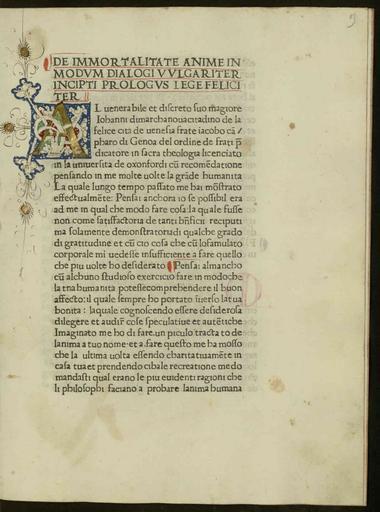 DE IMMORTALITATE ANIME IN
MODVM DIALOGI VVLGARITER
INCIPTI PROLOGVS LEGE FELICI
TER
AL uenerabile et discreto suo magiore
Iohanni dimarchanoua citadino de la
felice cita de uenesia frate iacobo cā/
pharo di Genoa del ordine de frati p̄
dicatore in sacra theologia licenciato
in la inuersita de oxonfordi cū recomēdatione
pensando in me molte uolte la grāde humanita
La quale lungo tempo passato me hai mōstrato
effectualmēte: Pensai anchora io se possibil era
ad me in qual che modo fare cosa: la quale fusse
non come satisfactoria de tanti bn̄ficii receputi
ma solamente demonstratoru di qualche grado
di gratitudine et cū cio cosa che cū lo famulato
corporale mi uedesse insufficiente a fare quello
che piu uolte ho desiderato Pensai almancho
cū alchuno studioso exercicio fare in modo che
la tua humanita potesse comprehendere il buon
affecto: il quale sempre ho portato īuerso la tua
bonita: la quale cognoscendo essere desiderosa
di legere et audir cose speculatiue et autētiche
Imaginato me ho di fare un piculo tracta to de
lanima a tuo nome. et a fare questo me ha mosso
che la ultima uolta essendo charitatiuamēte in
casa tua et prendendo cibale recreatione me do
mandasti qual erano le piu euidenti ragioni che
li philosophi faciano a probare lanima humana